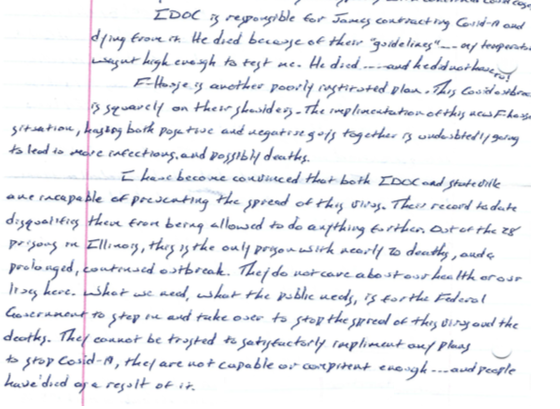 IDOC is responsible for James contracting Covid-19 and
dying from it. He died because of their "guidelines"--- my temperature
wasn't high enough to test me. He died ---- and he did not have to!
F-House is another poorly instituted plan. This Covid outbreak
is squarely on their shoulders. The implimentation of this new F house
situation, having both positive and negative guys together is undoubtedly going
to lead to more infections, and possibly deaths.
I have become convinced that both IDOC and stateville
are incapable of preventing the spread of this virus. Their record to date
disqualifies them from being allowed to do anything further. Out of the 28
prisons in Illinois, this is the only prison with nearly 20 deaths, and a
prolonged, continued outbreak. They do not care about our health or our
lives here. What we need, what the public needs, is for the Federal
Government to step in and take over to stop the spread of this virus and the
deaths. They cannot be trusted to satisfactorily impliment any plans
to stop Covid-19, they are not capable or competent enough --- and people
have died as a result of it.